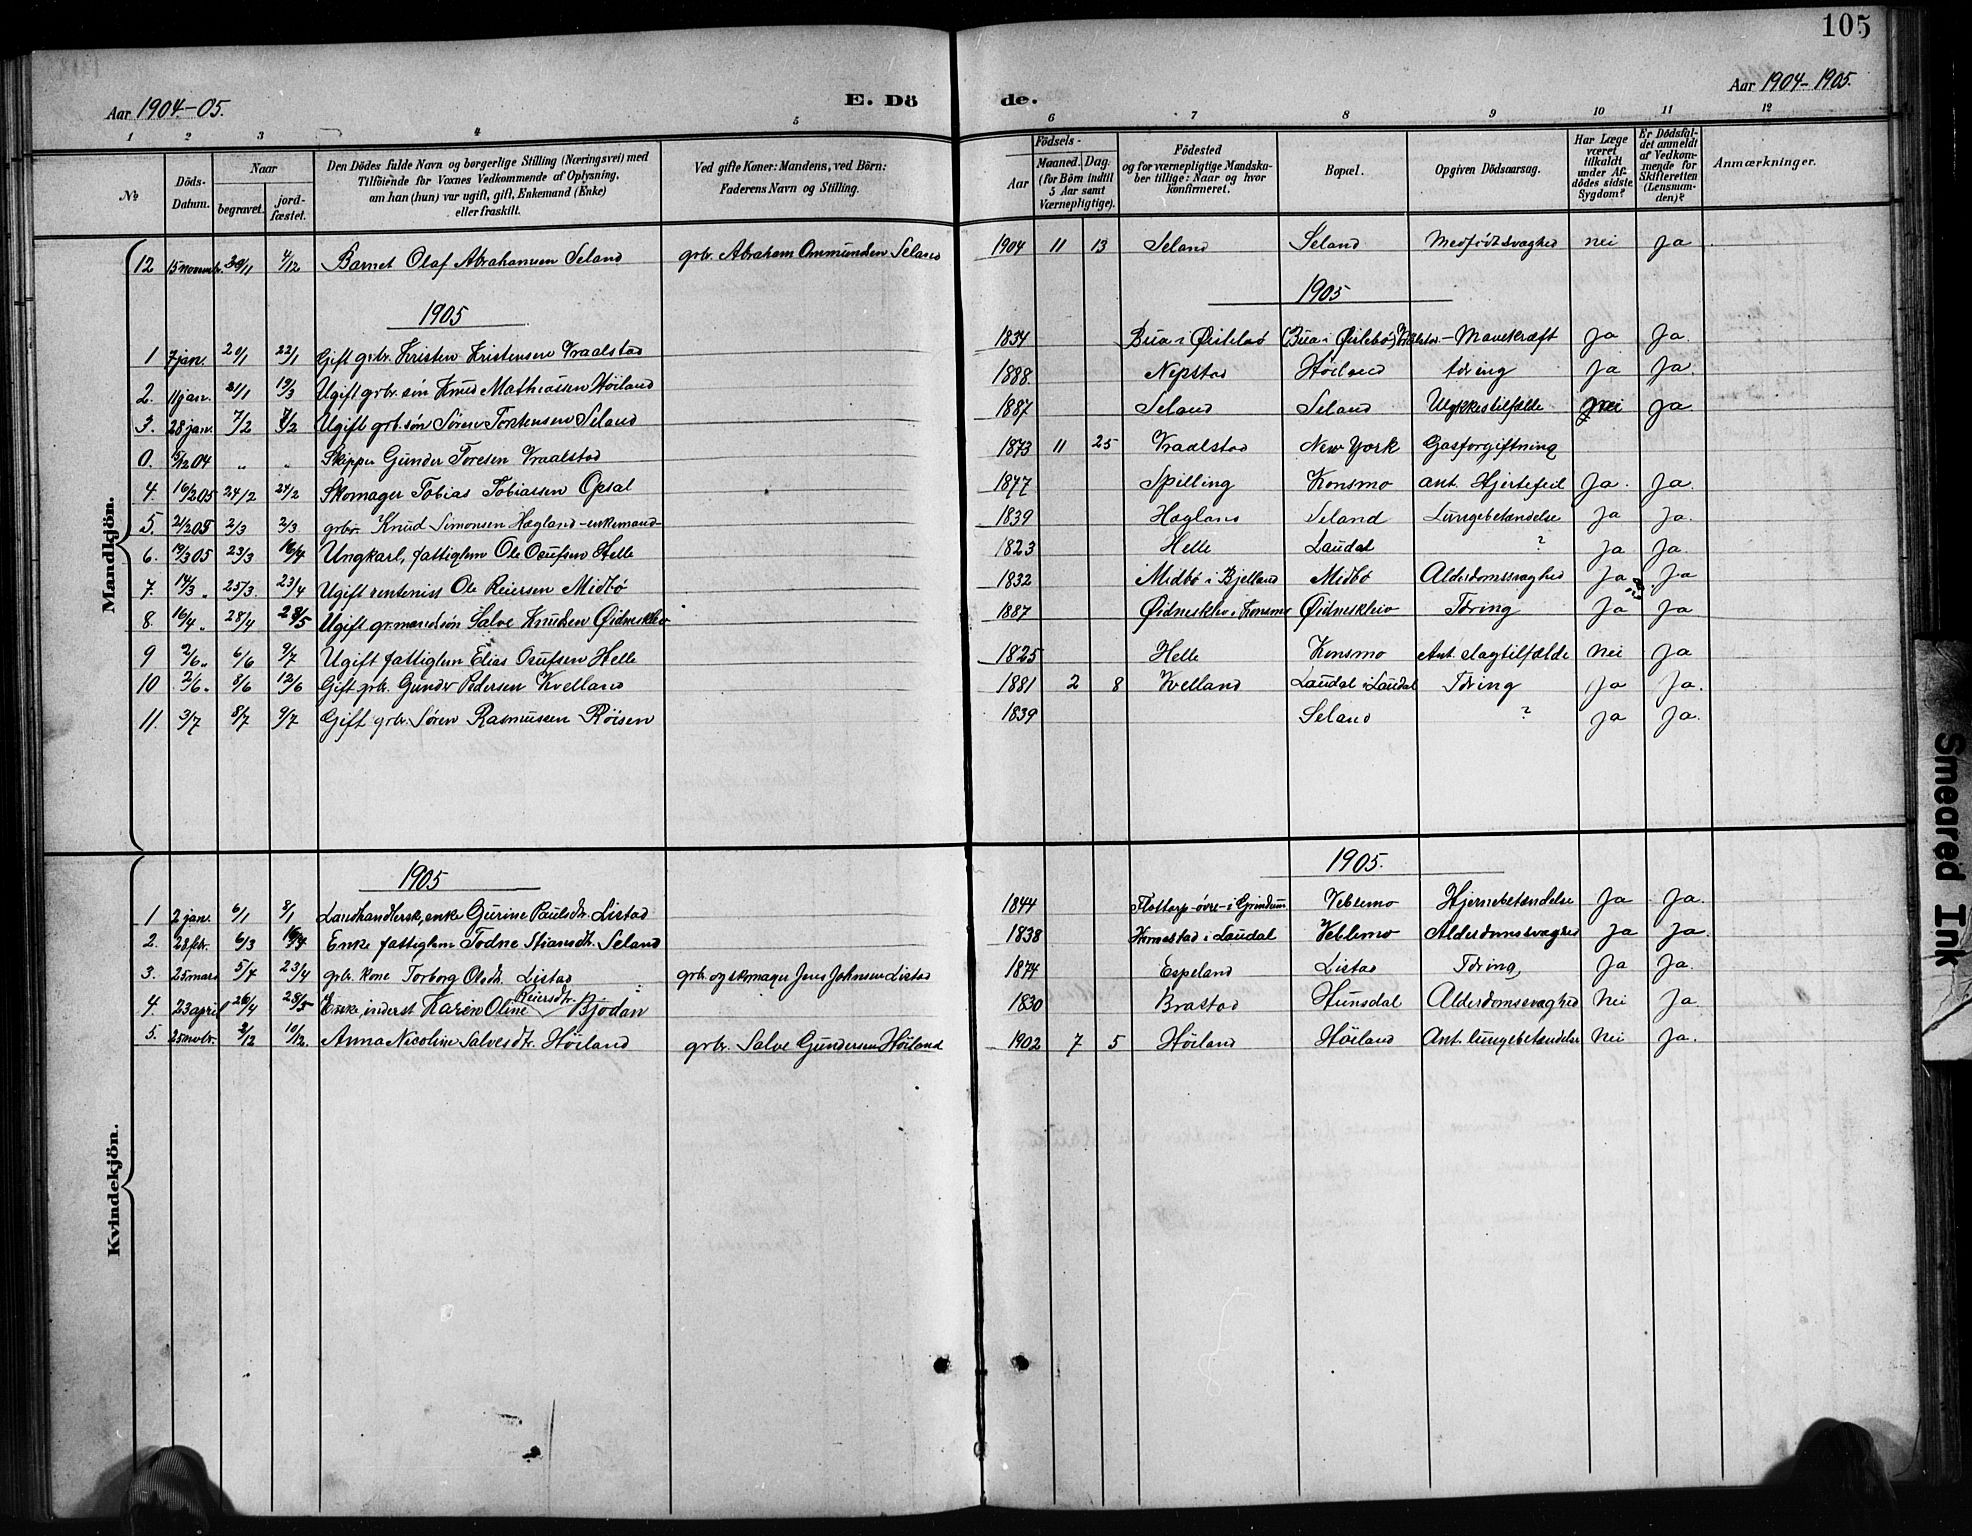 105
Aar 1904.-05.
E. Dö
de.
Aar 1904-1905.
1 2 3 4 5 6 7 8 9 10 11 12
№
Döds-Datum.
Naar
begravet.
jord-fæstet.
Den Dödes fulde Navn og borgerlige Stilling (Næringsvei) med
Tilföiende for Voxnes Vedkommende af Oplysning,
om han (hun) var ugift, gift, Enkemand (Enke)
eller fraskilt.
Ved gifte Koner: Mandens, ved Börn:
Faderens Navn og Stilling.
Födsels-
Aar
Maaned. Dag.
(for Börn indtil 5 Aar samt Værnepligtige).
Födested
og for værnepligtige Mandska-
ber tillige: Naar og hvor
konfirmeret.
Bopæl.
Opgiven Dödsaarsag.
Har Læge været tilkaldt under Af-dödes sidste Sygdom?
Er Dödsfal-det anmeldt af Vedkom-mende for Skifteretten (Lensman-den)?
Anmærkninger.
Mandkjön.
12 15 novembr. 29/11 4/12 Barnet Olaf Abrahamsen Seland grbr. Abraham Ommundsen Seland 1904 11 13 Seland Seland Medfödt svaghed nei Ja
1905
1905
1 7 jan. 20/1 22/1 Gift grbr. Kristen Kristensen Vraalstad 1834 Bua i Øislebö (Bua i Øislebö) - Mavekræft Ja Ja
2. 11 jan. 21/1 19/3 Ugift grbr. sön Knud Mathiassen Höiland 1888 Nepstad Höiland tæring Ja Ja.
3. 28 jan. 7/2 7/2 Ugift grb. sön Sören Torstensen Seland 1887 Seland Seland Ulykkestilfælde nei Ja
0. 5/12 04 " " Skipper Gunder Toresen Vraalstad 1873 11 25 Vraalstad New York Gasforgiftning
4. 16/2 05 24/2 24/2 Skomager Tobias Tobiassen Opsal 1877 Spilling Konsmo ant. Hjertefeil Ja. Ja.
5. 21/2 05 2/3 2/3 grbr. Knud Simonsen Hægland -enkemand- 1839 Hægland Seland Lungebetændelse Ja Ja.
6. 19/3 05 23/3 16/4 Ungkarl, fattiglem Ole Osufsen Helle 1823 Helle Laudal ? Ja Ja.
7. 14/3 " 25/3. 23/4 Ugift rentenist Ole Reiersen Midbö 1832 Midbö i Bjelland Midbö Alderdomssvaghed Ja Ja
8. 16/4 " 28/4 28/5 Ugift gr.mandssön Salve Knudsen Øidneskleiv 1887 Øidnesklev i Konsmo Øidneskleiv Tæring Ja Ja
9 2/6 " 6/6 9/7 Ugift fattiglem Elias Osufsen Helle 1825 Helle Konsmo Ant. slagtilfælde Nei Ja
10 2/6 " 8/6 12/6 Gift grbr. Gunder Pedersen Kvelland 1881 2 8 Kvelland Laudal i Laudal Tæring Ja Ja.
11. 3/7 8/7 9/7 Gift grbr. Sören Rasmussen Röisen 1839 Seland ? Ja Ja.
Kvindekjön.
1905
1905.
1 2 jan. 6/1 8/1 Landhandlersk, enke Gurine Paulsdtr. Listad 1844 Flottorp-övre- i Grindum Veblemo Hjernebetændelse Ja Ja.
2. 28 febr. 6/3 16/4 Enke fattiglem Todne Stiansdtr. Seland 1838 Homestad i Laudal Veblemo Alderdomssvaghed Ja Ja.
3. 25 mars 5/4 23/4 grbr. kone Torborg Olsdtr. Listad grbr. og skomager Jens Johnsen Listad 1874 Espeland Listad Tæring, Ja Ja.
4. 23 april 26/4 28/5 Enke, inderst Karen Oline Reiersdtr. Bjodan 1830 Brastad Hunsdal Alderdomssvaghed Nei Ja.
5. 25 novbr. 2/12 10/12. Anna Nicoline Salvesdtr. Höiland grbr. Salve Gundersen Höiland 1902 7 5 Höiland Höiland Ant. lungebetændelse Nei Ja.
Smeared Ink